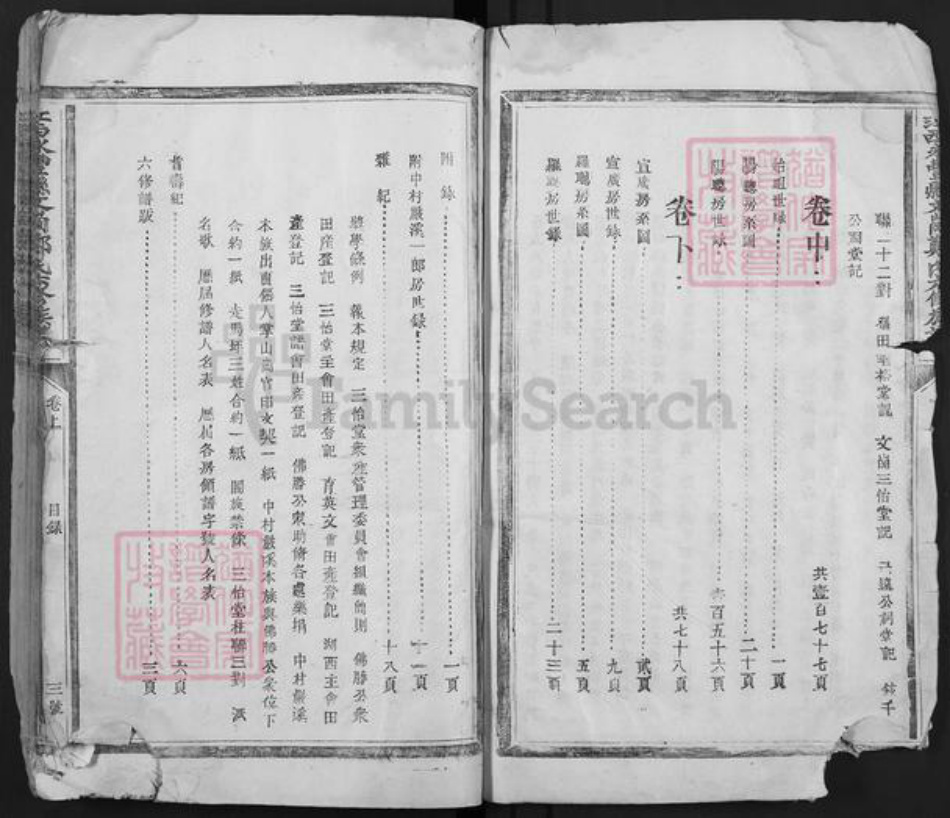 聯一十二對 福田 堂記 文崗三怡堂記 公詞堂記 千
公 堂記
卷中： 共壹百七十七頁
始祖世錄 一頁
陽聰房系圖 二十頁
陽聰房世錄 百五十六頁
卷下： 共七十八頁
宣廣房系圖 貳頁
宣廣房世錄 九頁
羅聰房系圖 五頁
羅聰房世錄 二十三頁
附錄 一頁
附中村嚴溪一郎房世錄 十一頁
雜紀 十八頁
學條例 報本規定 三怡堂眾產管理委員會組織簡則 佛勝公眾
田產登記 三怡堂 會田產登記 育英文會田產登記 湖西主會田
產登記 三怡堂譜會田產登記 佛勝公眾助脩各處樂捐 中村嚴溪
本族出 人 山 官印文契一紙 中村嚴溪本族與佛勝公眾位下
合約一紙 走馬坪三姓合約一紙 闔族禁條 三怡堂柱聯三對 派
名歌 歷屆修譜人名表 歷屆各房領譜字號人名表
耆壽紀 六頁
六修譜跋 三頁
卷上
目錄
三號
FamilySearch